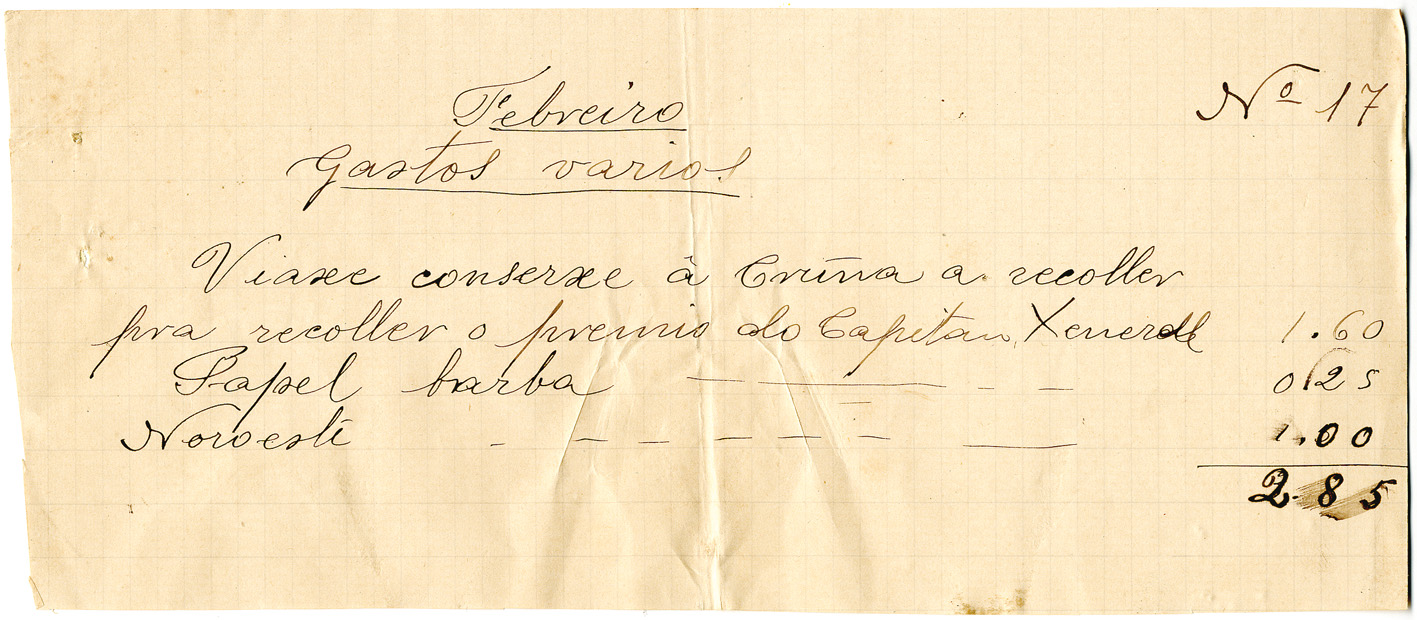 Nº 17
Febreiro
Gastos varios
Viaxe conserxe à Cruña a recoller
pra recoller o premio do Capitan Xeneral 1.60
Papel barba — — - - 0,25
Noroeste - — - — — — — 1.00
2.85